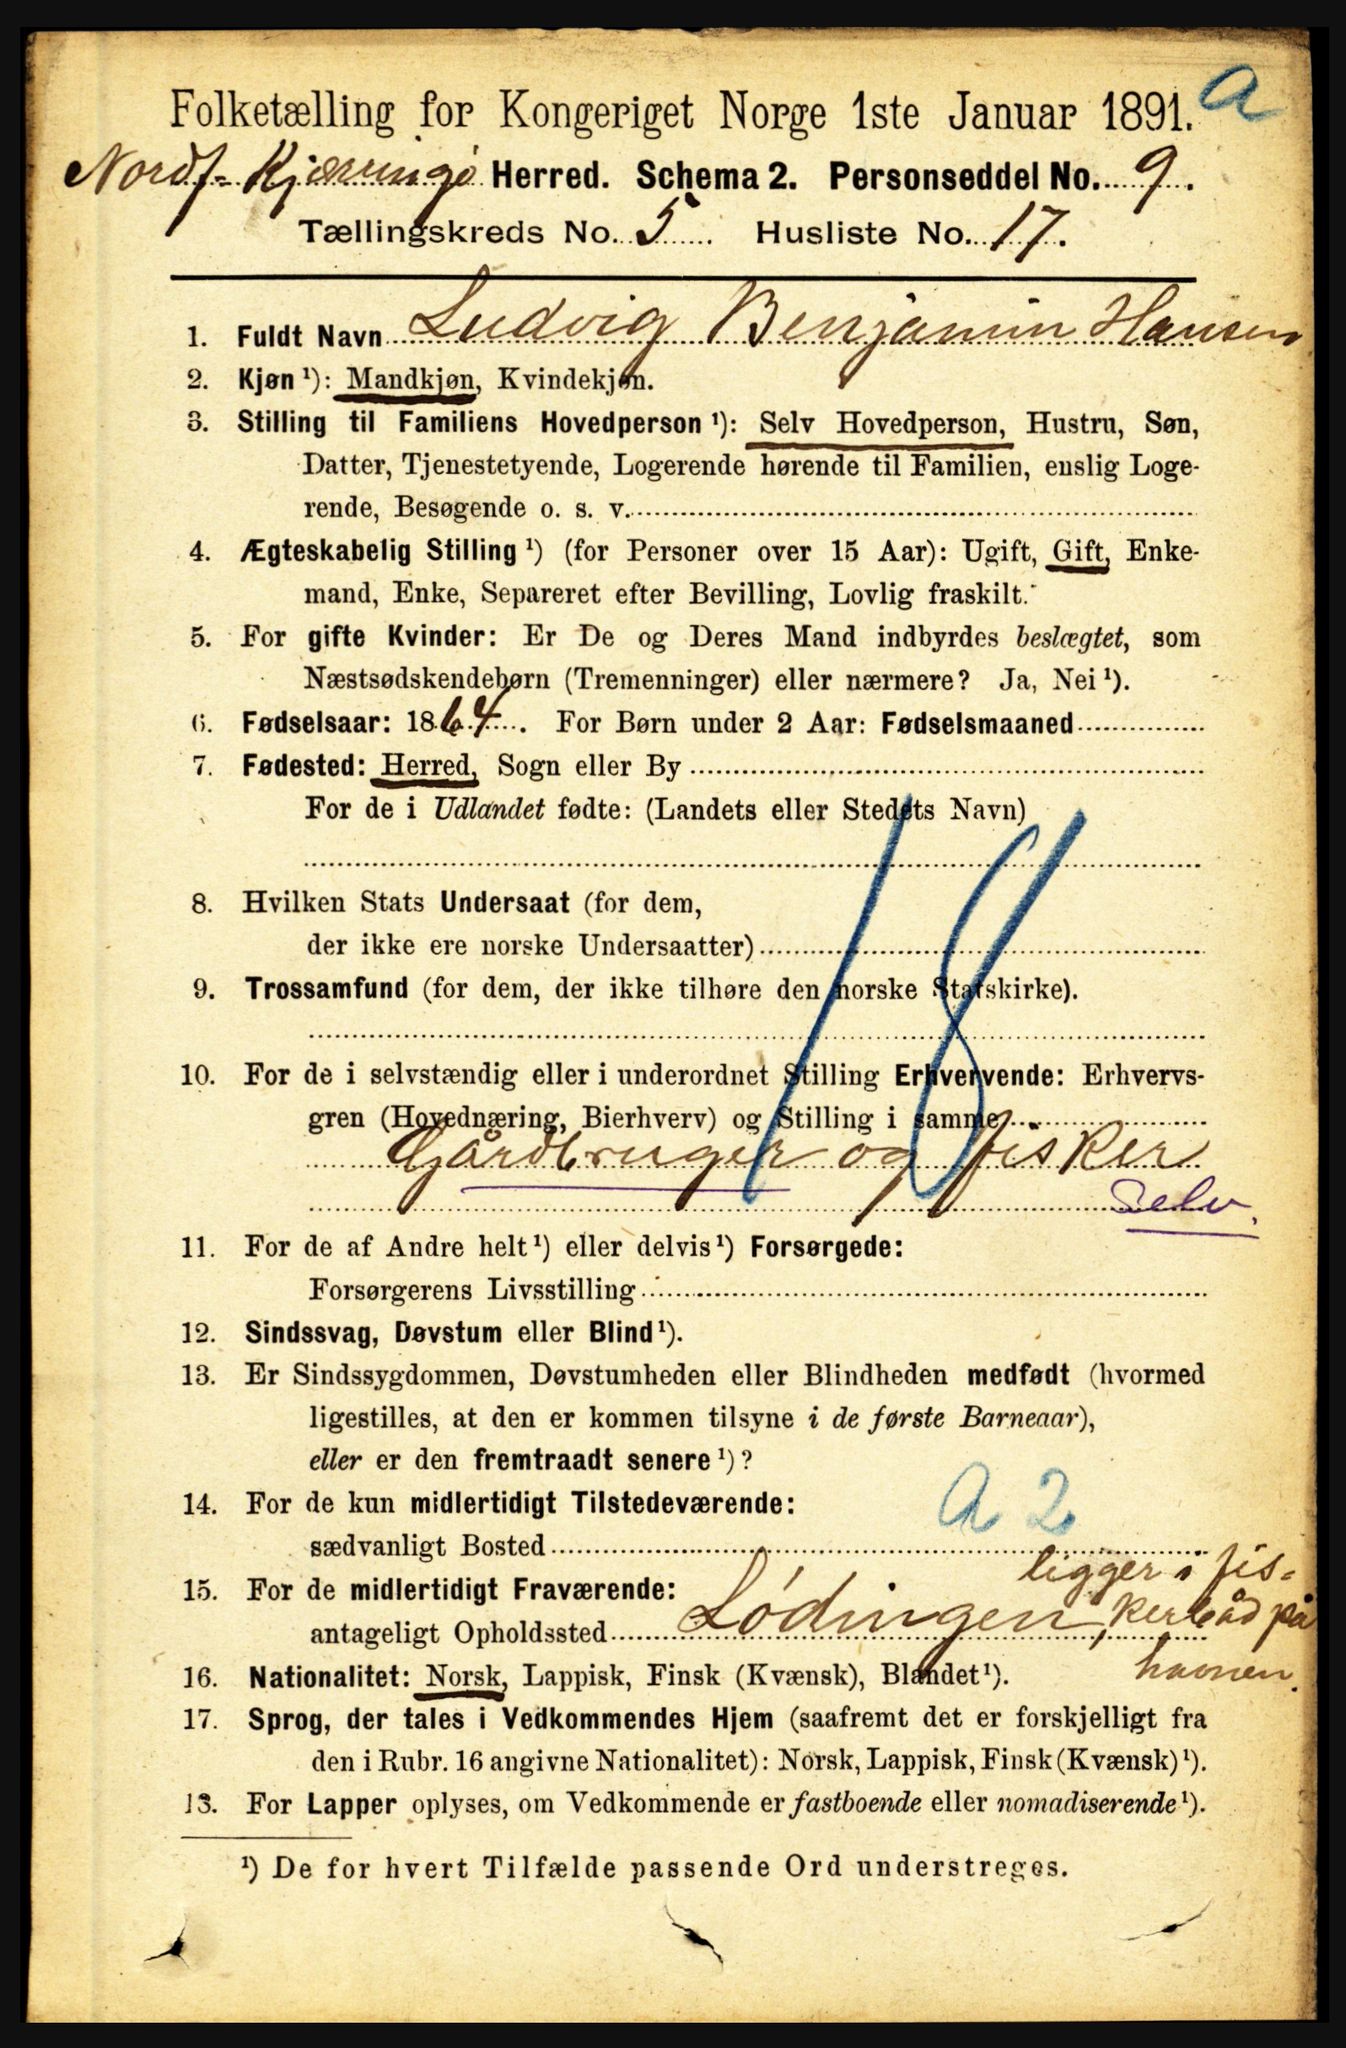 Folketælling for Kongeriget Norge 1ste Januar 1891. a
Nordf.-Kjæringø Herred. Schema 2. Personseddel No. 9.
Tællingskreds No. 5 Husliste No. 17.
1. Fuldt Navn Ludvig Benjamin Hansen
2. Kjøn ¹): Mandkjøn, Kvindekjøn.
3. Stilling til Familiens Hovedperson ¹): Selv Hovedperson, Hustru, Søn,
Datter, Tjenestetyende, Logerende hørende til Familien, enslig Loge-
rende, Besøgende o. s. v.
4. Ægteskabelig Stilling ¹) (for Personer over 15 Aar): Ugift, Gift, Enke-
mand, Enke, Separeret efter Bevilling, Lovlig fraskilt.
5. For gifte Kvinder: Er De og Deres Mand indbyrdes beslægtet, som
Næstsødskendebørn (Tremenninger) eller nærmere? Ja, Nei ¹).
6. Fødselsaar: 1864. For Børn under 2 Aar: Fødselsmaaned
7. Fødested: Herred, Sogn eller By
For de i Udlandet fødte: (Landets eller Stedets Navn)
8. Hvilken Stats Undersaat (for dem,
der ikke ere norske Undersaatter)
9. Trossamfund (for dem, der ikke tilhøre den norske Statskirke).
18
10. For de i selvstændig eller i underordnet Stilling Erhvervende: Erhvervs-
gren (Hovednæring, Bierhverv) og Stilling i samme
Gårdbruger og fisker
selv.
11. For de af Andre helt ¹) eller delvis ¹) Forsørgede:
Forsørgerens Livsstilling
12. Sindssvag, Døvstum eller Blind ¹).
13. Er Sindssygdommen, Døvstumheden eller Blindheden medfødt (hvormed
ligestilles, at den er kommen tilsyne i de første Barneaar),
eller er den fremtraadt senere ¹)?
14. For de kun midlertidigt Tilstedeværende:
a 2
sædvanligt Bosted
15. For de midlertidigt Fraværende: ligger i fis-
antageligt Opholdssted Lødingen, kerbåd på
havnen.
16. Nationalitet: Norsk, Lappisk, Finsk (Kvænsk), Blandet ¹).
17. Sprog, der tales i Vedkommendes Hjem (saafremt det er forskjelligt fra
den i Rubr. 16 angivne Nationalitet): Norsk, Lappisk, Finsk (Kvænsk) ¹).
13. For Lapper oplyses, om Vedkommende er fastboende eller nomadiserende ¹).
¹) De for hvert Tilfælde passende Ord understreges.